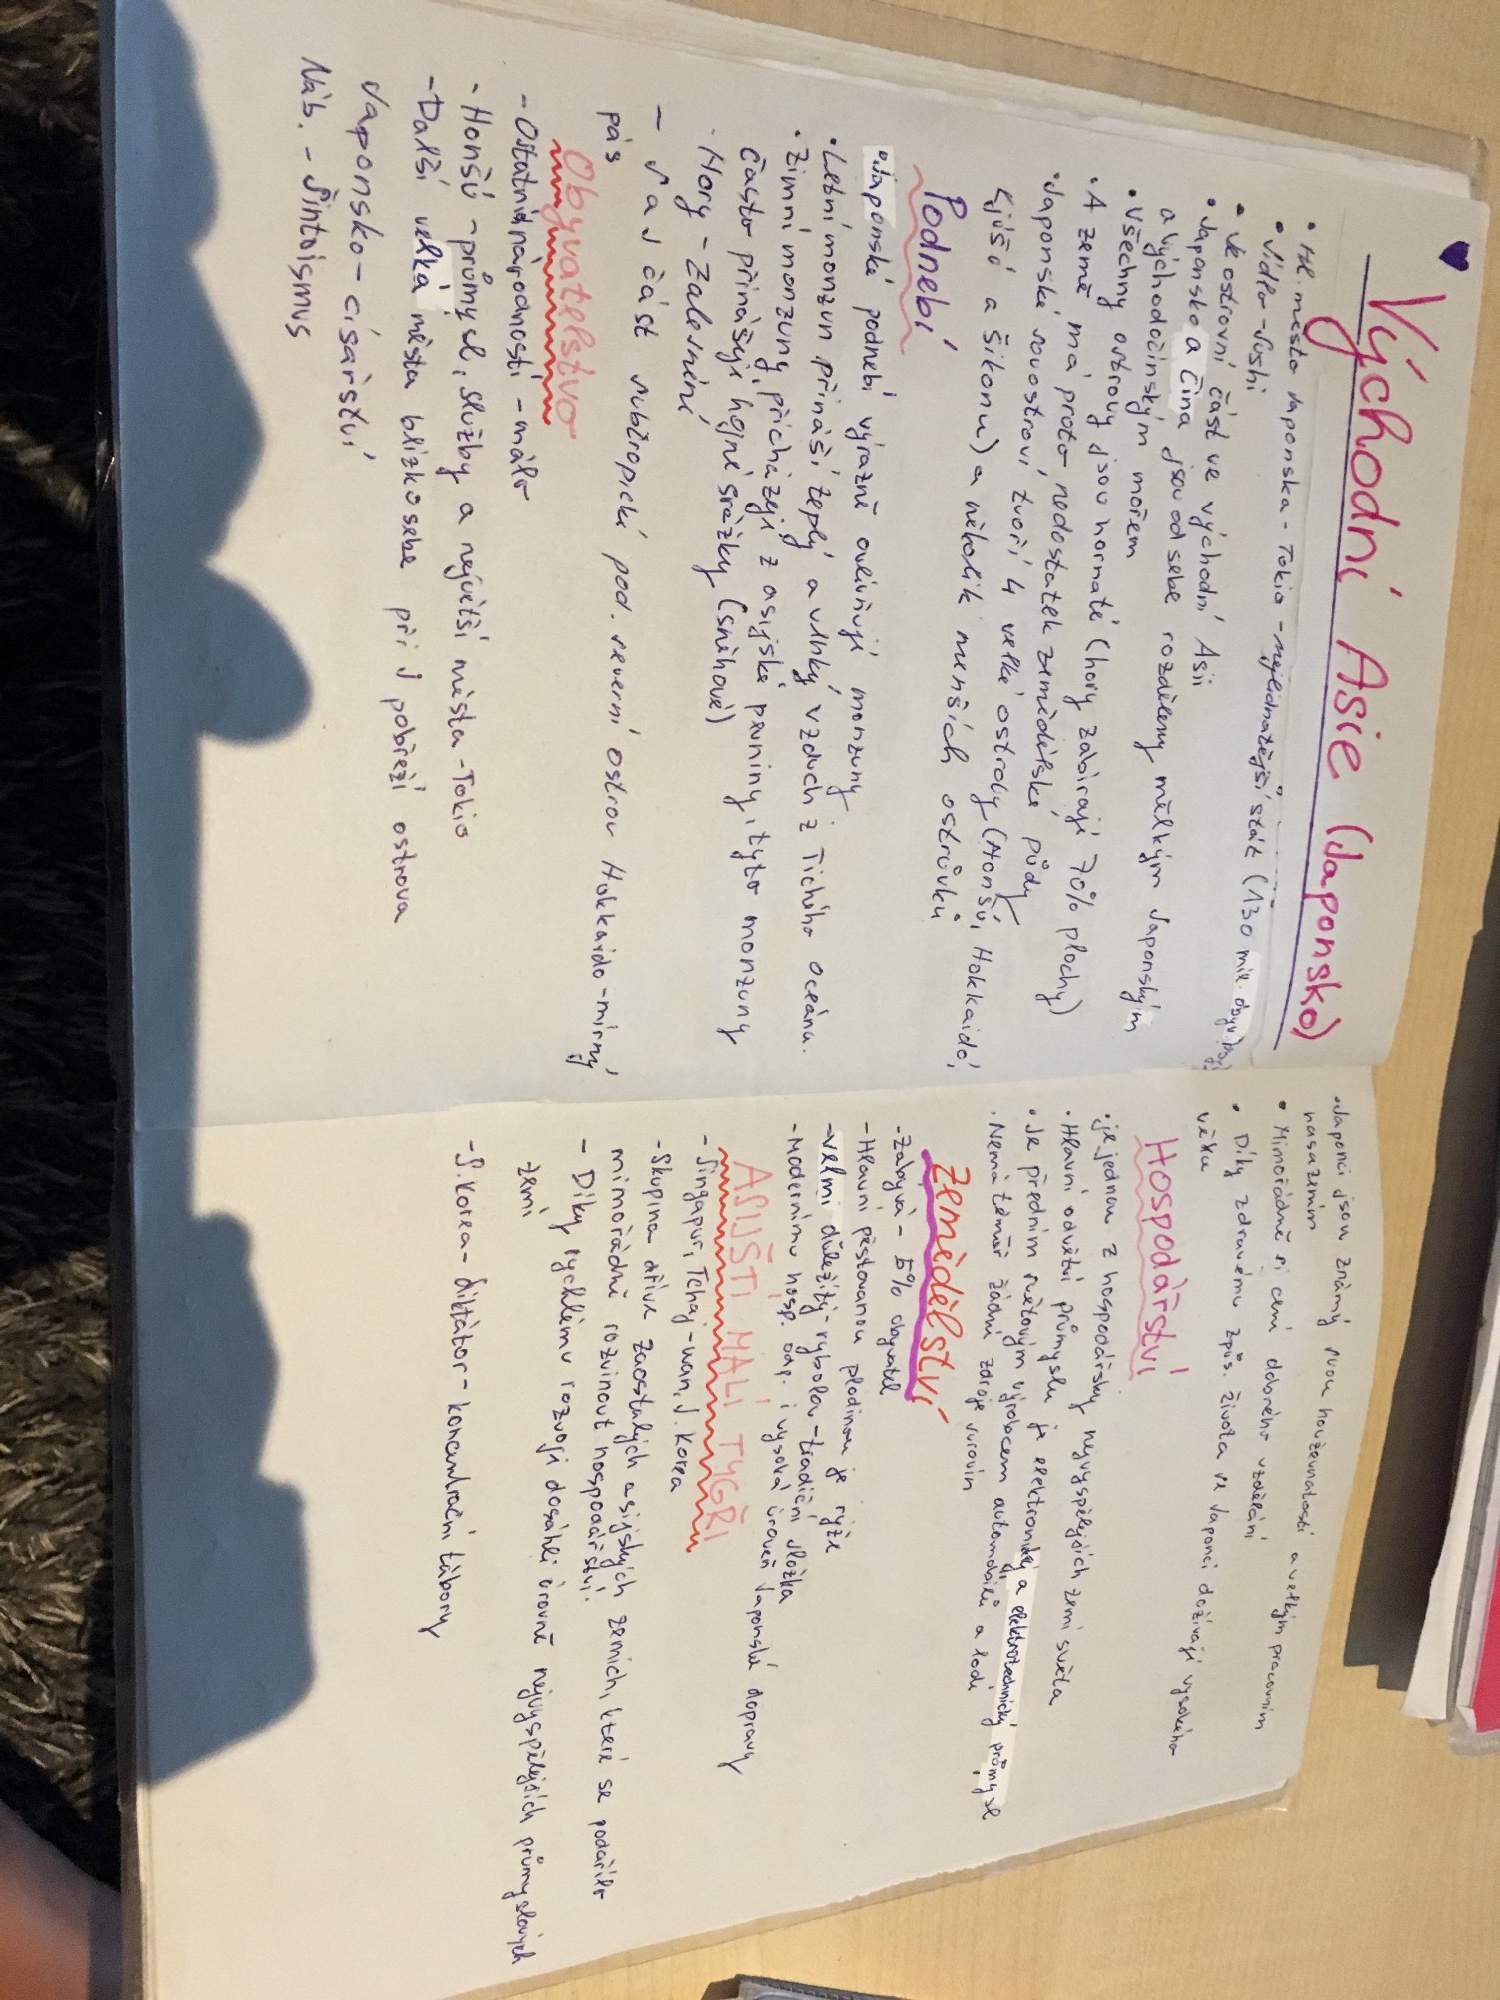 Východní Asie (Japonsko)
• Hl. město Japonska - Tokio - nejlidnatější stát (130 mil. obyv.)
• Jídlo - Sushi
• Ve ostrovní část ve východní Asii
• Japonsko a Čína jsou od sebe rozděleny mělkým Japonským
a východočínským mořem
• Všechny ostrovy jsou hornaté (hory zabírají 70% plochy)
• A země má proto nedostatek zemědělské půdy
• Japonské souostroví tvoří 4 velké ostroby (Honšú, Hokkaidó,
Kjúšú a Šikoku) a několik menších ostrůvků
Podnebí
• Japonské podnebí výrazně ovlivňují monzuny
• Letní monzun přináší teplý a vlhký vzduch z Tichého oceánu.
• Zimní monzuny přicházejí z asijské pevniny, tyto monzuny
často přinášejí hojné srážky (sněhové)
• Hory - Zalesnění
- J a J část subtropické pod. severní ostrov Hokkaido - mírný
pás
Obyvatelstvo
- Ostatní národnosti - málo
- Honšú - průmysl, služby a největší města - Tokio
- Další velká města blízko sebe při J pobřeží ostrova
Japonsko - císařství
Náb. - Šintoismus
• Japonci jsou známý svou houževnatostí a velkým pracovním
nasazením
• Mimořádně si cení dobrého vzdělání
• Díky zdravému způs. života se Japonci dožívají vysokého
věku
Hospodářství
• je jednou z hospodářsky nejvyspělejších zemí světa
• Hlavní odvětví průmyslu je elektronický a elektrotechnický průmysl
• Je předním světovým výrobcem automobilů a lodí
• Nemá téměř žádné zdroje surovin
Zemědělství
- Zabývá - 5% obyvatel
- Hlavní pěstovanou plodinou je rýže
- velmi důležitý - rybolov - tradiční složka
- Modernímu hosp. odp. i vysoká úroveň Japonské dopravy
ASIJŠTÍ MALÍ TYGŘI
- Singapur, Tchaj-wan, J. Korea
- Skupina dříve zaostalých asijských zemích, které se podařilo
mimořádně rozvinout hospodářství.
- Díky rychlému rozvoji dosáhli úrovně nejvyspělejších průmyslových
zemí
- S. Korea - diktátor - koncentrační tábory